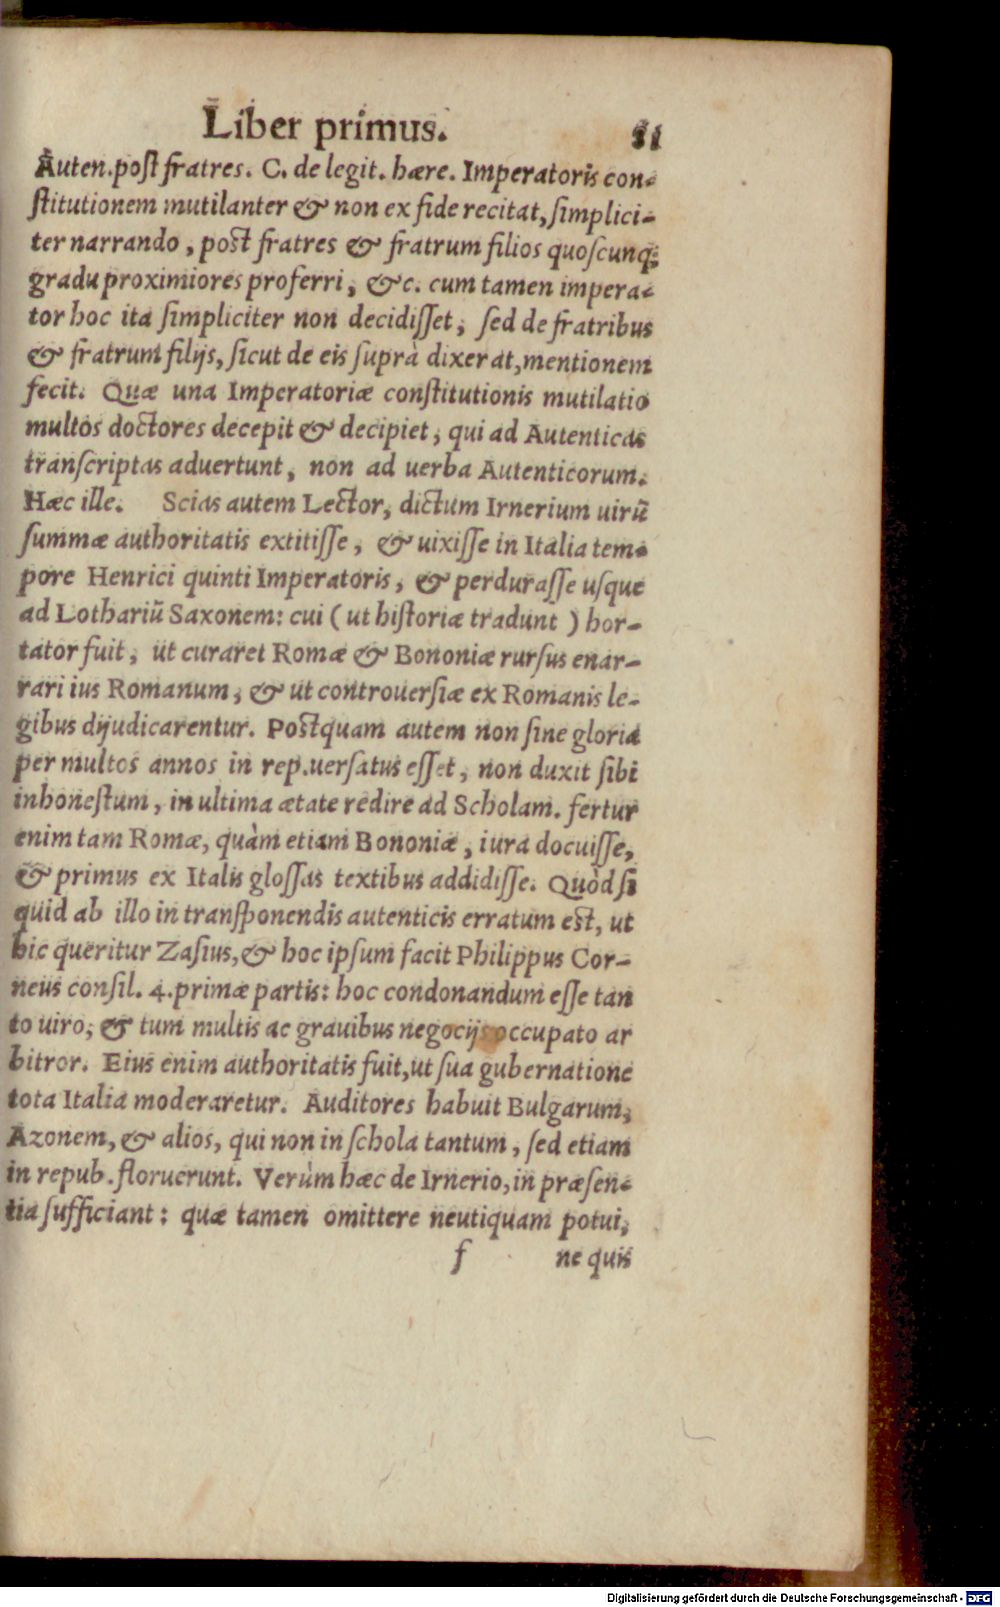 Liber primus. 81
Auten.post fratres. C. de legit. hære. Imperatoris con-
stitutionem mutilanter & non ex fide recitat, simplici-
ter narrando, post fratres & fratrum filios quoscunq;
gradu proximiores proferri, &c. cum tamen impera-
tor hoc ita simpliciter non decidisset, sed de fratribus
& fratrum filijs, sicut de eis suprà dixerat, mentionem
fecit. Quæ una Imperatoriæ constitutionis mutilatio
multos doctores decepit & decipiet, qui ad Autenticas
transcriptas aduertunt, non ad uerba Autenticorum.
Hæc ille. Scias autem Lector, dictum Irnerium uirũ
summæ authoritatis extitisse, & uixisse in Italia tem-
pore Henrici quinti Imperatoris, & perdurasse usque
ad Lothariũ Saxonem: cui ( ut historiæ tradunt ) hor-
tator fuit, ut curaret Romæ & Bononiæ rursus enar-
rari ius Romanum, & ut controuersiæ ex Romanis le-
gibus dijudicarentur. Postquam autem non sine gloria
per multos annos in rep.uersatus esset, non duxit sibi
inhonestum, in ultima ætate redire ad Scholam. fertur
enim tam Romæ, quàm etiam Bononiæ, iura docuisse,
& primus ex Italis glossas textibus addidisse. Quòd si
quid ab illo in transponendis autenticis erratum est, ut
hic queritur Zasius, & hoc ipsum facit Philippus Cor-
neus consil. 4. primæ partis: hoc condonandum esse tan
to uiro, & tum multis ac grauibus negocijs occupato ar
bitror. Eius enim authoritatis fuit, ut sua gubernatione
tota Italia moderaretur. Auditores habuit Bulgarum,
Azonem, & alios, qui non in schola tantum, sed etiam
in repub. floruerunt. Verùm hæc de Irnerio, in præsen-
tia sufficiant: quæ tamen omittere neutiquam potui,
f ne quis
Digitalisierung gefördert durch die Deutsche Forschungsgemeinschaft - DFG